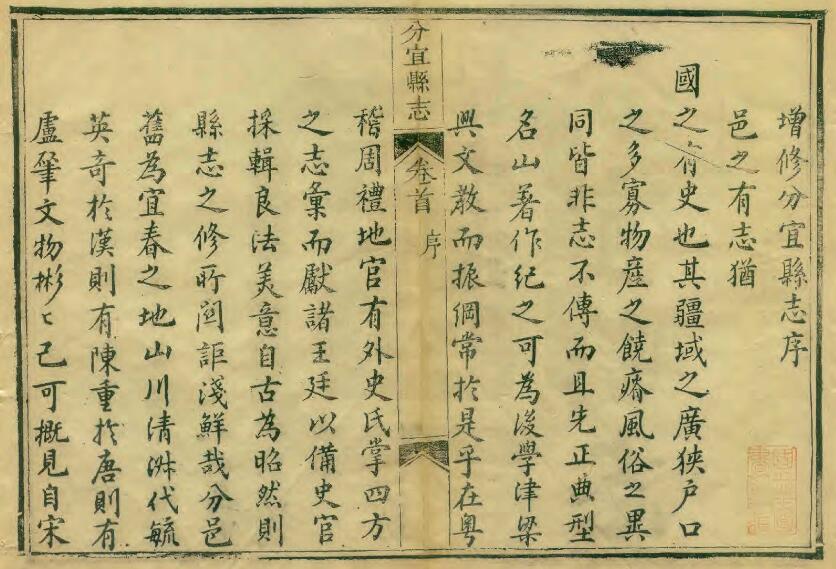 增修分宜縣志序
邑之有志猶
國之有史也其疆域之廣狹户口
之多寡物產之饒瘠風俗之異
同皆非志不傳而且先正典型
名山著作紀之可為後學津梁
興文教而振綱常於是乎在粵
分宜縣志
卷首
序
稽周禮地官有外史氏掌四方
之志彙而獻諸王廷以備史官
採輯良法美意自古為昭然則
縣志之修所関詎淺鮮哉分邑
舊為宜春之地山川清淑代毓
英奇於漢則有陳重於唐則有
盧肇文物彬〻已可概見自宋